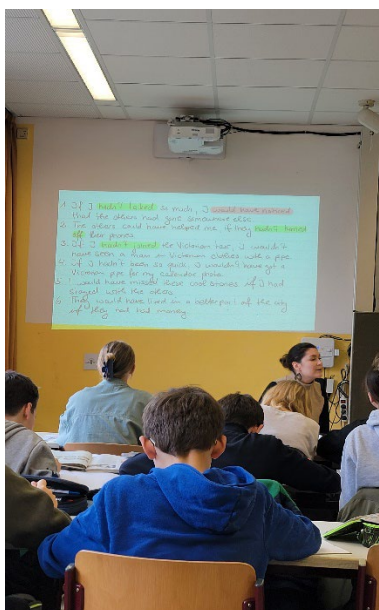 1. If I hadn't talked so much, I would have noticed
that the others had gone somewhere else.
2. The others could have helped me if they hadn't turned
off their phones
3. If I hadn't joined the Victorian tour, I wouldn't
have seen a man in Victorian clothes with a pipe.
4. If I hadn't been so quick, I wouldn't have got a
Victorian pipe for my calendar photo.
5. I would have missed these cool stories if I had
stayed with the others.
6. They would have lived in a better part of the city
if they had had money.